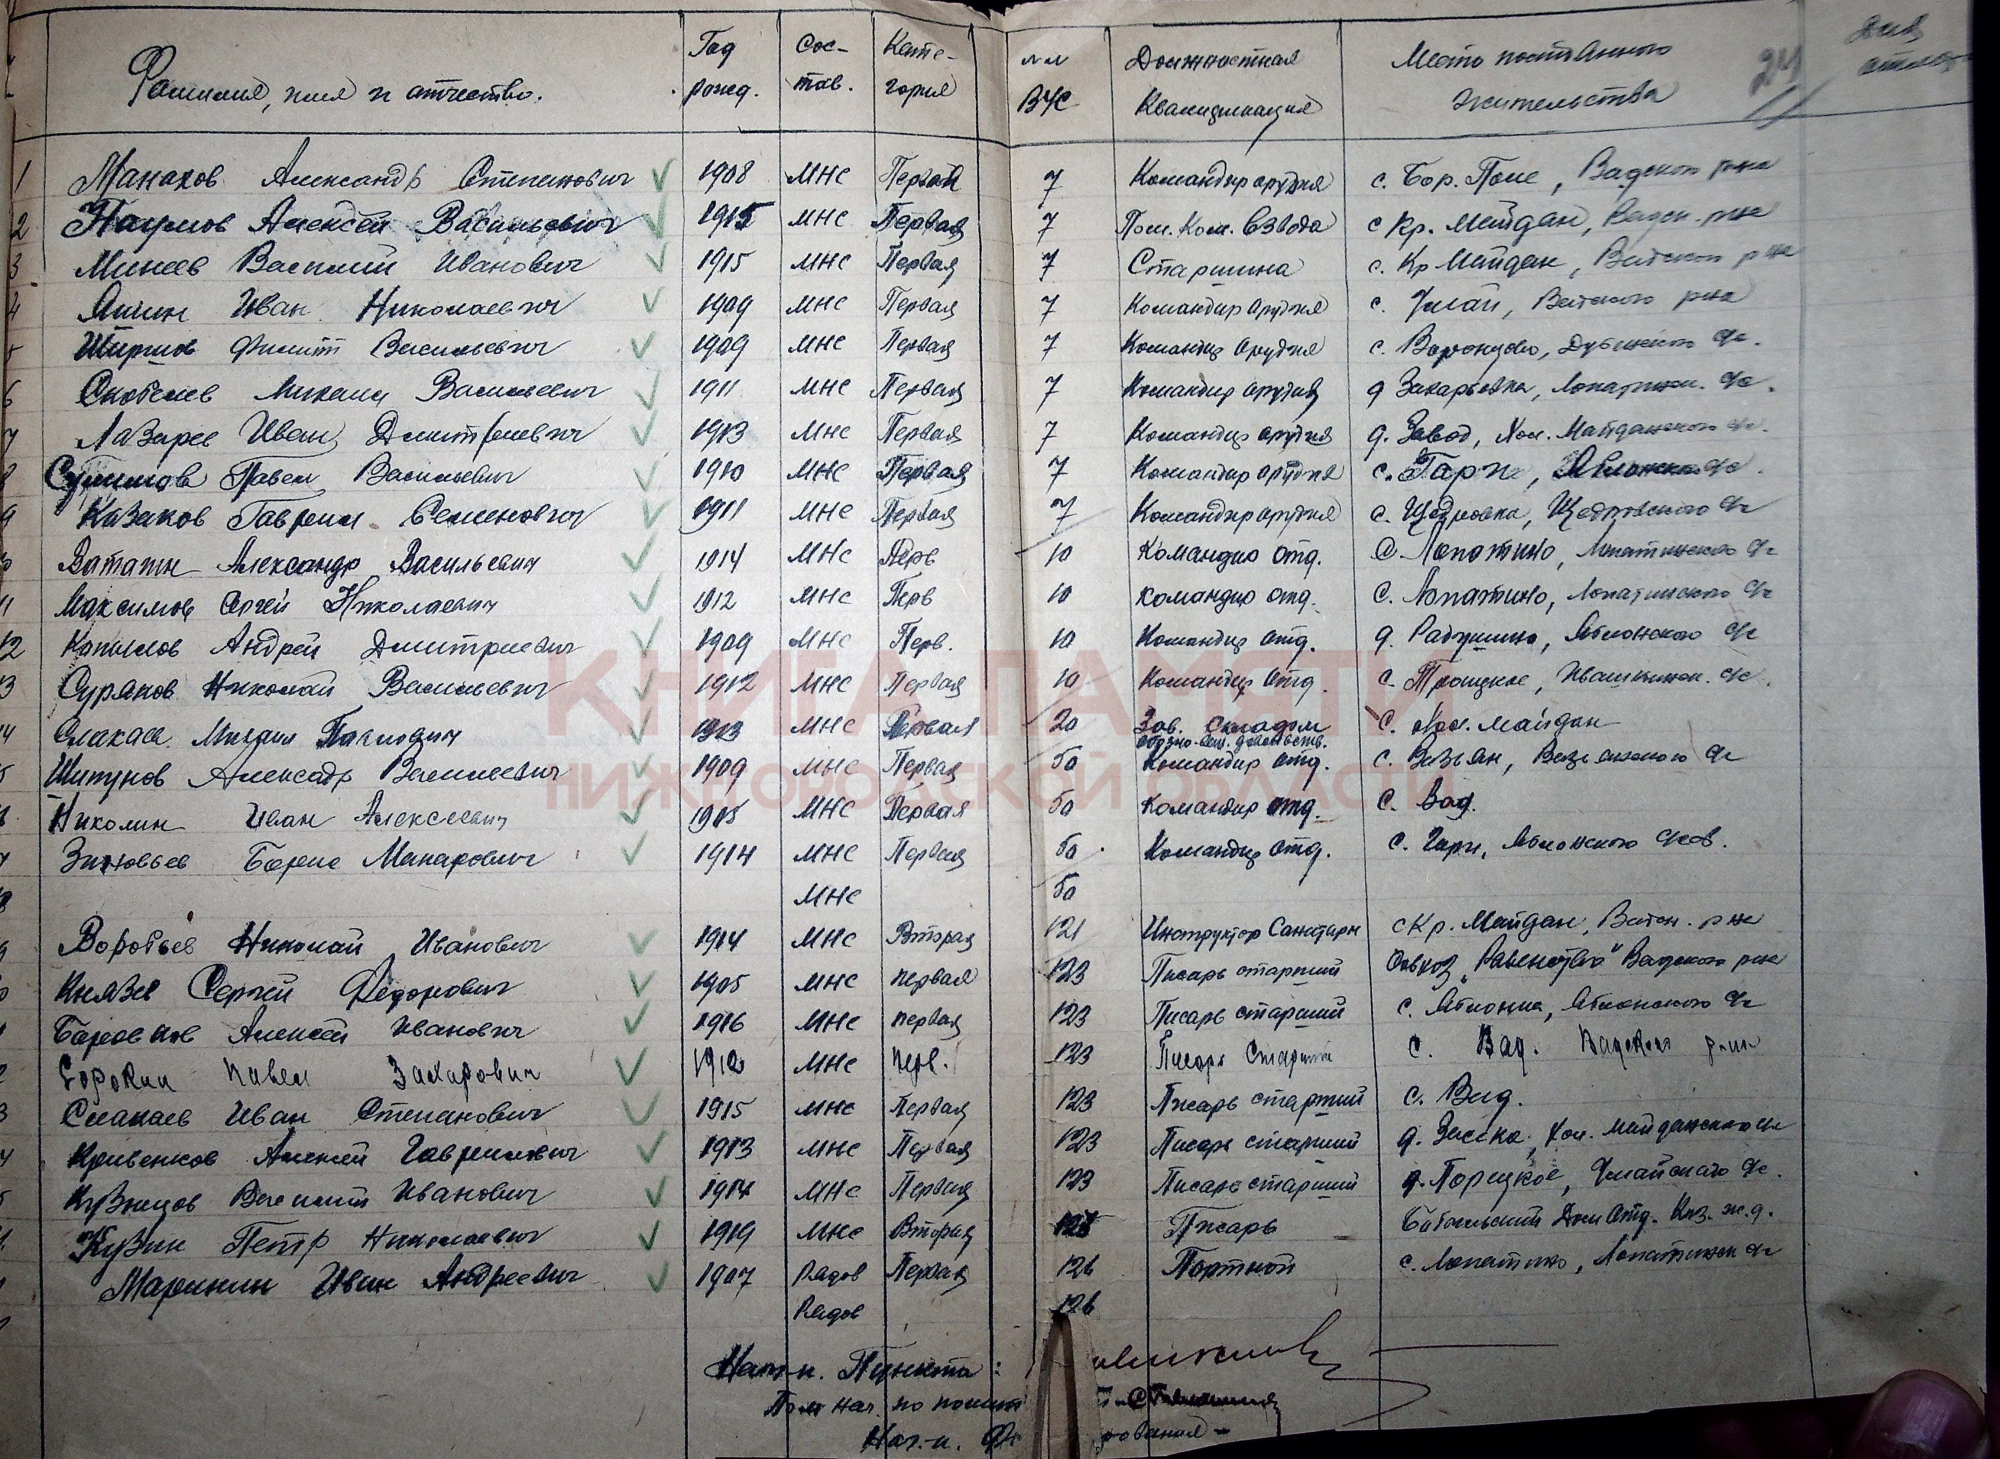 Фамилия, имя и отчество. Год рожд. Сос-тав. Кате-гория №№ ВУС Должностная Квалификация Место постоянного жительства 24
1 Манахов Александр Степанович 1908 МНС Первая 7 Командир орудия с. Бор. Поле, Вадского р-на
2 Наумов Алексей Васильевич 1915 МНС Первая 7 Пом. Ком. Взвода с Кр. Майдан, Вадск. р-на
3 Минеев Василий Иванович 1915 МНС Первая 7 Старшина с. Кр Майдан, Вадского р-на
4 Яшин Иван Николаевич 1909 МНС Первая 7 Командир орудия с. Умай, Вадского р-на
5 Ширшов Филипп Васильевич 1909 МНС Первая 7 Командир орудия с. Воронцово, Дубенского с/с.
6 Скобелев Михаил Васильевич 1911 МНС Первая 7 Командир орудия д Захарьевка, Лопатинск. с/с.
7 Лазарев Иван Дмитриевич 1913 МНС Первая 7 Командир орудия д. Завод, Майданского с/с.
8 Павел Васильевич 1910 МНС Первая 7 Командир орудия с. Гари, Яблонского с/с.
9 Казаков Гаврил Семенович 1911 МНС Первая 7 Командир орудия с. Щедровка, Щедровского с/с
Ватагин Александр Васильевич 1914 МНС Перв 10 Командир отд. с. Лопатино, Лопатинского с/с
11 Максимов Сергей Николаевич 1912 МНС Перв 10 командир отд. с. Лопатино, Лопатинского с/с
12 Копылов Андрей Дмитриевич 1909 МНС Перв. 10 Командир отд. д. Радушино, Яблонского с/с
13 Суряков Николай Васильевич 1912 МНС Первая 10 Командир отд. с. Троицкое, Ивашкинск. с/с.
14 Слакаев Михаил Павлович 1913 МНС Первая 20 Зав. складом с. Майдан
обозно-вещ. довольств.
Шипунов Александр Васильевич 1909 МНС Первая 50 Командир отд. с. Вазьян, Вазьянского с/с
Николин Иван Алексеевич 1905 МНС Первая 50 Командир отд. с. Вад.
Зиновьев Борис Макарович 1914 МНС Первая 50 Командир отд. с. Гари, Яблонского с/сов.
МНС 50
Воробьев Николай Иванович 1914 МНС Вторая 121 Инструктор Санитарн с Кр. Майдан, Вадск. р-на
Князев Сергей Федорович 1905 МНС первая 123 Писарь старший Совхоз „Равенство" Вадского р-на
Алексей Иванович 1916 МНС первая 123 Писарь старший с. Яблонка, Яблонского с/с
Сорокин Павел Захарович 1912 МНС перв. 123 Писарь Старший с. Вад. Вадского р-на
Слакаев Иван Степанович 1915 МНС Первая 123 Писарь старший с. Вад.
Кривенков Алексей Гаврилович 1913 МНС Первая 123 Писарь старший д. Засека, Майданского с/с
Кузнецов Василий Иванович 1914 МНС Первая 123 Писарь старший д. Порецкое, Умайского с/с.
Кузин Петр Николаевич 1919 МНС Вторая Писарь Отд. Каз. ж.д.
Маринин Иван Андреевич 1907 Рядов Первая 126 Портной с. Лопатино, Лопатинск с/с
Рядов 126
Нач-к. Пункта:
Пом нач. по полит
Нач.-к.
КНИГА ПАМЯТИ
НИЖЕГОРОДСКОЙ ОБЛАСТИ